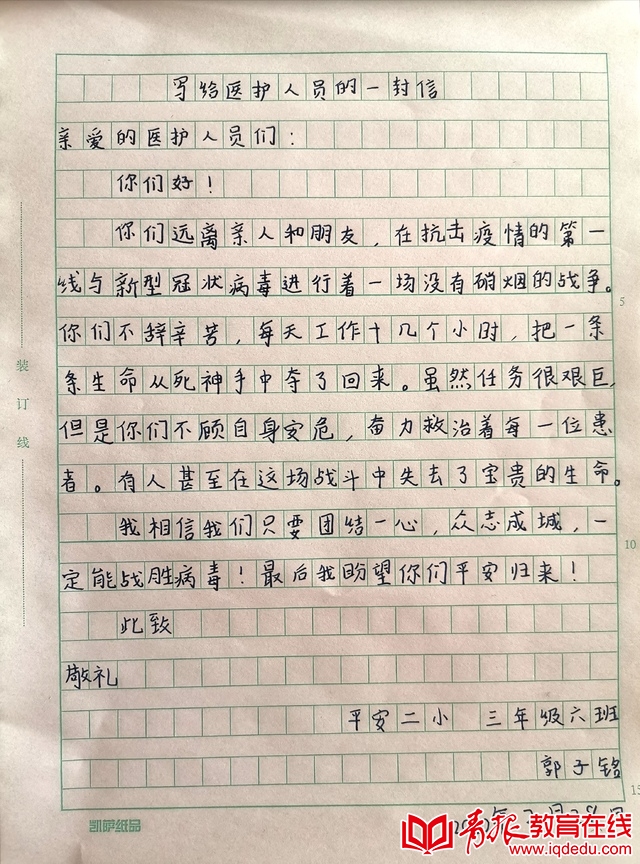 写给医护人员的一封信
亲爱的医护人员们：
你们好！
你们远离亲人和朋友，在抗击疫情的第一
线与新型冠状病毒进行着一场没有硝烟的战争。
你们不辞辛苦，每天工作十几个小时，把一条
条生命从死神手中夺了回来。虽然任务很艰巨，
但是你们不顾自身安危，奋力救治着每一位患
者。有人甚至在这场战斗中失去了宝贵的生命。
我相信我们只要团结一心，众志成城，一
定能战胜病毒！最后我盼望你们平安归来！
此致
敬礼
平安二小 三年级六班
郭子铭
装订线
5
10
15
凯萨纸品
青报教育在线
www.iqdedu.com